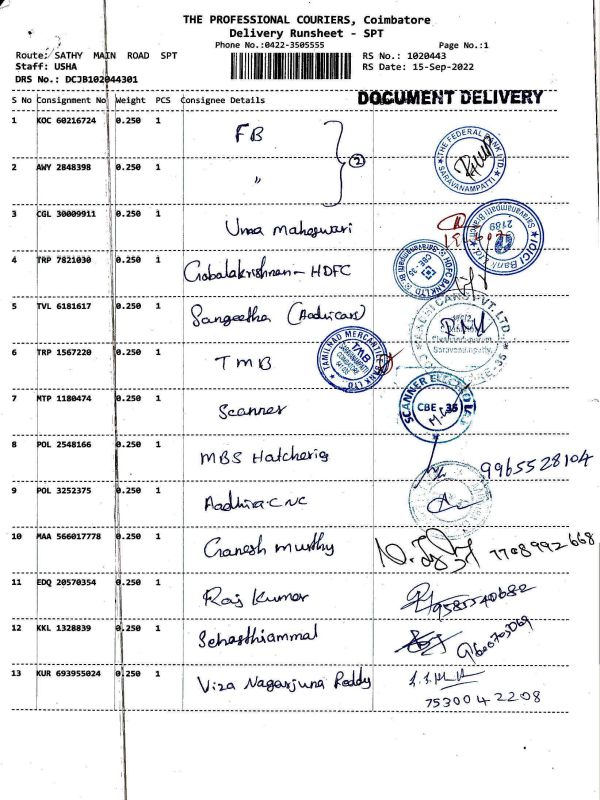 THE PROFESSIONAL COURIERS, Coimbatore
Delivery Runsheet - SPT
Phone No.:0422-3505555 Page No.:1
Route: SATHY MAIN ROAD SPT RS No.: 1020443
Staff: USHA RS Date: 15-Sep-2022
DRS No.: DCJB102044301
DOCUMENT DELIVERY
S No Consignment No Weight PCS Consignee Details
1 KOC 60216724 0.250 1 FB
2
THE FEDERAL BANK LTD. SARAVANAMPATTI
2 AWY 2848398 0.250 1 "
3 CGL 30009911 0.250 1 Uma maheswari
ICICI Bank Ltd 2189
4 TRP 7821030 0.250 1 Gobalakrishnan - HDFC
HDFC BANK LTD CBE-35
5 TVL 6181617 0.250 1 Sangeetha (Aadhicars)
Saravanampatty
6 TRP 1567220 0.250 1 TMB
TAMILNAD MERCANTILE BANK LTD. TMB
7 MTP 1180474 0.250 1 Scanner
CBE - 35
8 POL 2548166 0.250 1 MBS Hatcheries
9965528104
9 POL 3252375 0.250 1 Aadhira CNC
10 MAA 566017778 0.250 1 Ganesh Murthy
7708992668
11 EDQ 20570354 0.250 1 Raj Kumar
9585540682
12 KKL 1328839 0.250 1 Sebasthiammal
13 KUR 693955024 0.250 1 Viza Nagarjuna Reddy
7530042208